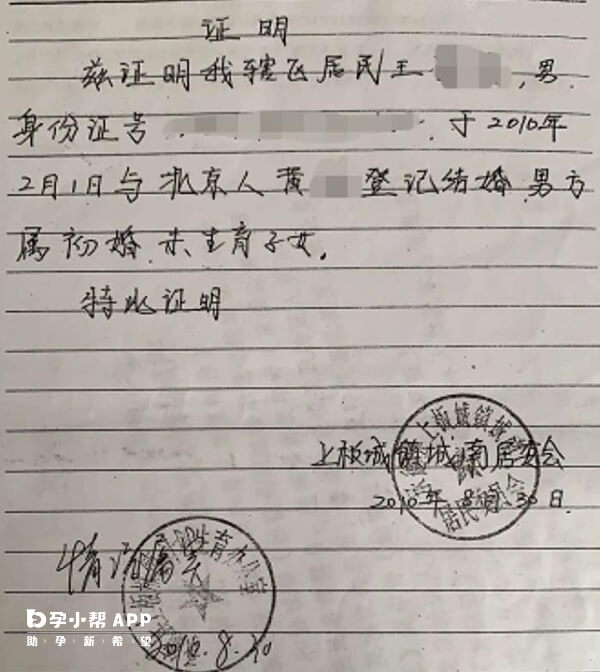 证明
兹证明我辖区居民王 ，男，
身份证号 于2010年
2月1日与北京人黄 登记结婚，男方
属初婚，未生育子女。
特此证明
上板城镇城南居委会
2010年8月30日
情况属实
2010.8.30
孕小帮APP
助孕新希望